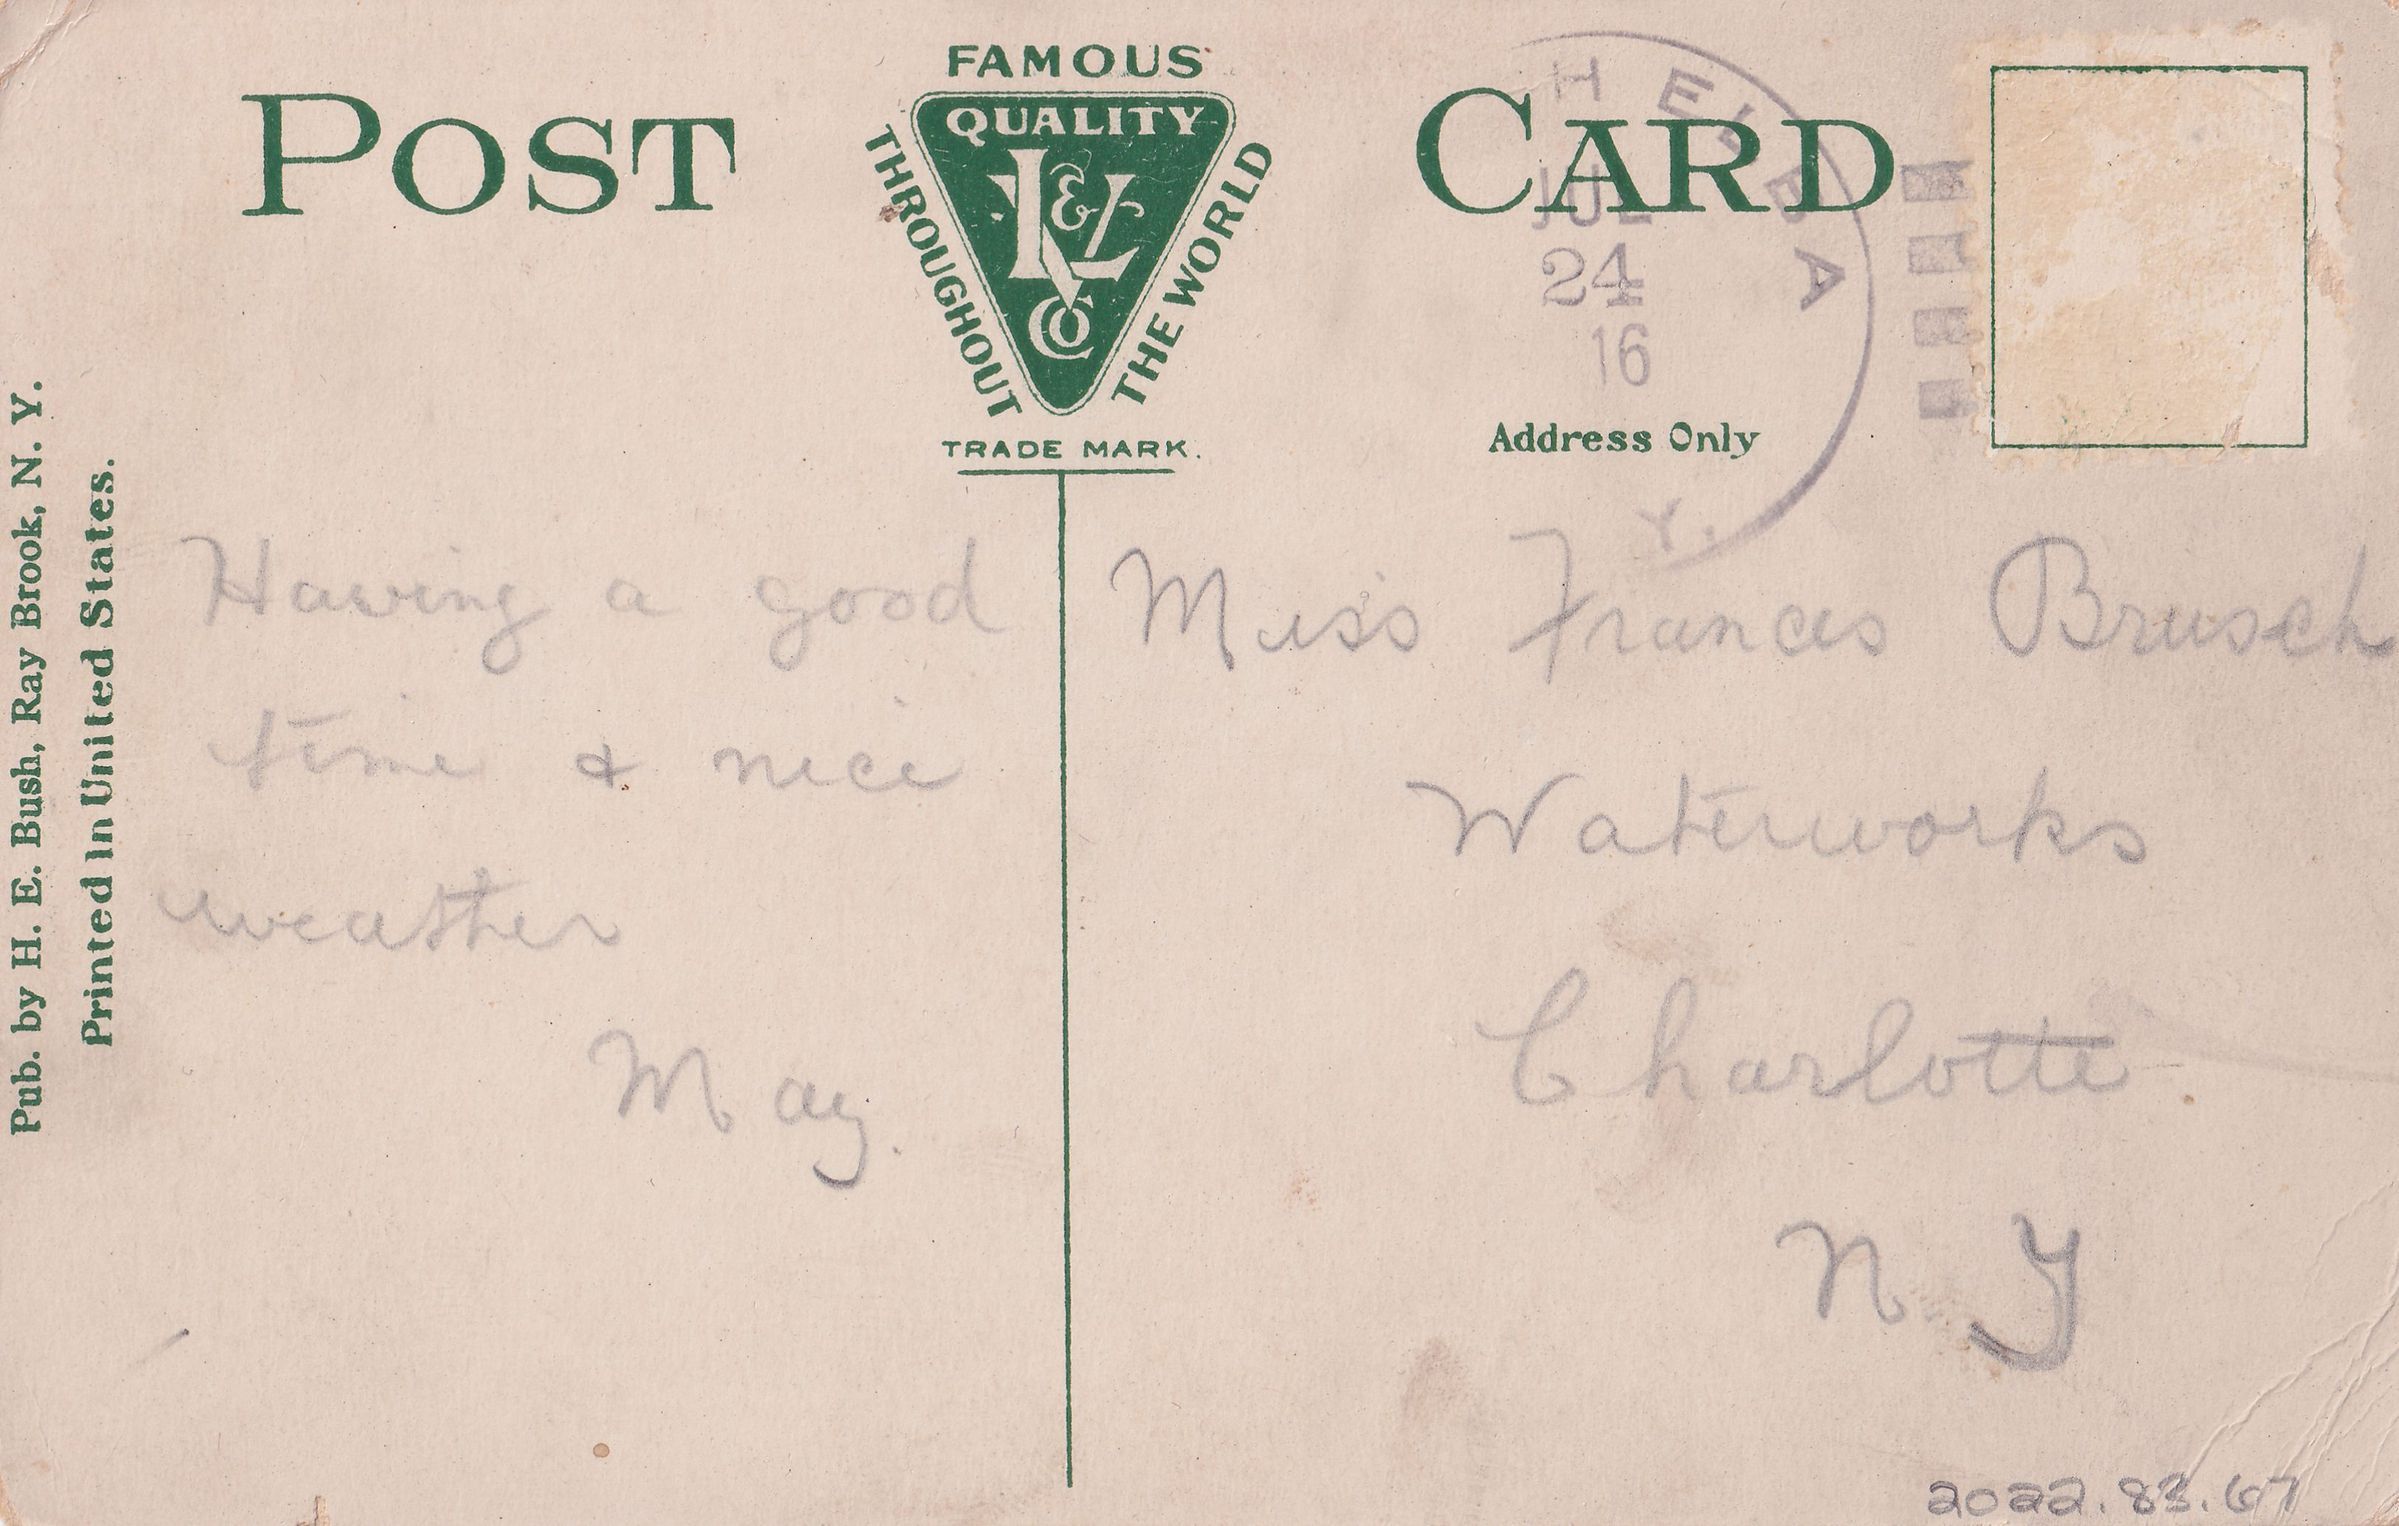 POST CARD
FAMOUS
QUALITY
THROUGHOUT
THE WORLD
K & V
Co
TRADE MARK.
HELBA
JUL
24
16
Y.
Address Only
Pub. by H. E. Bush, Ray Brook, N. Y.
Printed In United States.
Having a good
time & nice
weather
May.
Miss Frances Brusch
Waterworks
Charlotte
N. Y
2022.83.67